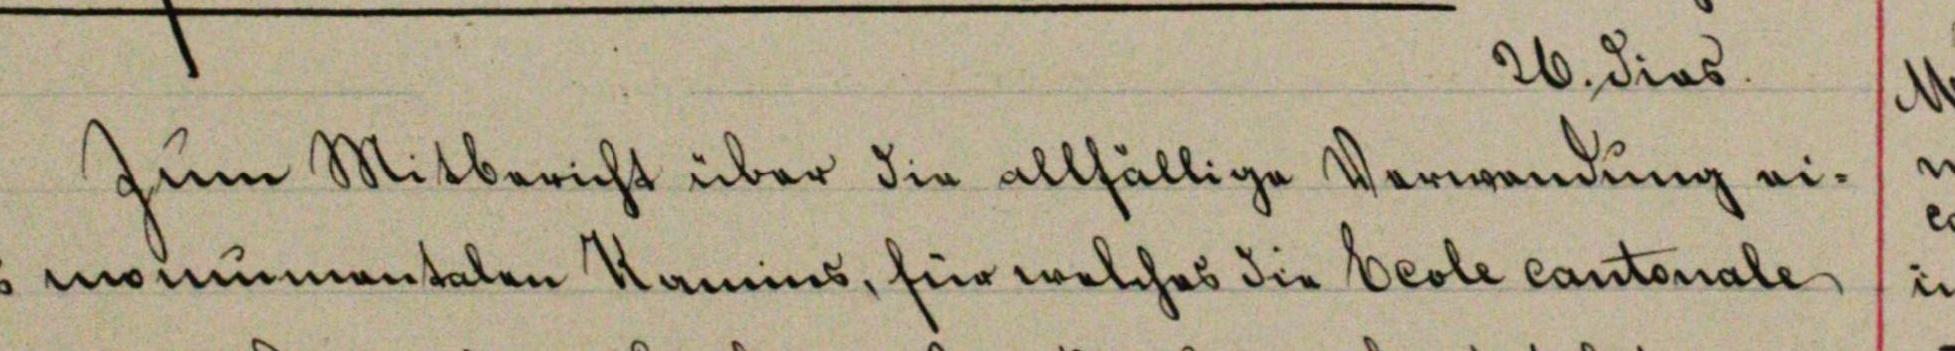 26. dies.
Zum Mitbericht über die allfällige Verwendung ei-
s monumentalen Kamins, für welches die Ecole cantonale